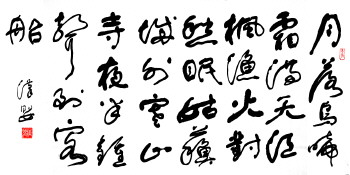 月落烏啼
霜滿天江
楓漁火對
愁眠姑蘇
城外寒山
寺夜半鐘
聲到客
船